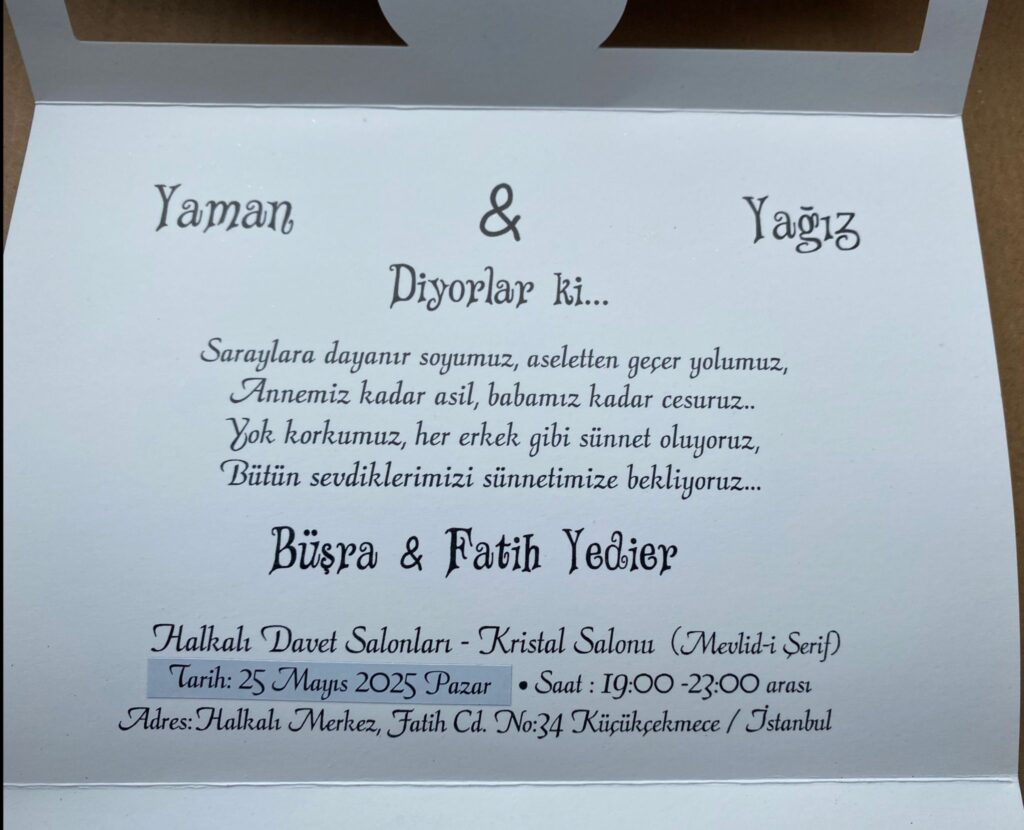 Yaman & Yağız
Diyorlar ki...
Saraylara dayanır soyumuz, aseletten geçer yolumuz,
Annemiz kadar asil, babamız kadar cesuruz..
Yok korkumuz, her erkek gibi sünnet oluyoruz,
Bütün sevdiklerimizi sünnetimize bekliyoruz...
Büşra & Fatih Yedier
Halkalı Davet Salonları - Kristal Salonu (Mevlid-i Şerif)
Tarih: 25 Mayıs 2025 Pazar • Saat : 19:00 -23:00 arası
Adres: Halkalı Merkez, Fatih Cd. No:34 Küçükçekmece / İstanbul